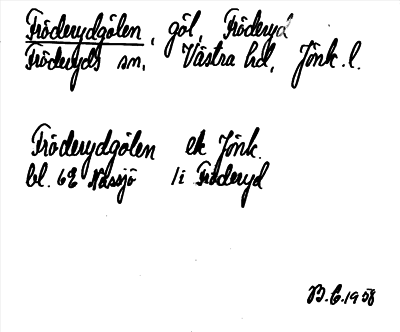 Fröderydgölen, göl, Fröderyd
Fröderyds sn. Västra hd, Jönk. l.
Fröderydgölen ek Jönk.
bl. 62 Nässjö 1i Fröderyd
B.E. 1958